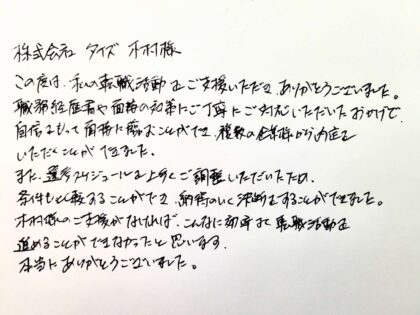 株式会社 タイズ 木村様
この度は、私の転職活動をご支援いただき、ありがとうございました。
職務経歴書や面接の対策にご丁寧にご対応いただいたおかげで、
自信をもって面接に臨むことができ、複数の企業様から内定を
いただくことができました。
また、選考スケジュールを上手くご調整いただいたため、
条件も比較することができ、納得のいく決断をすることができました。
木村様のご支援がなければ、こんなに効率よく転職活動を
進めることができなかったと思います。
本当にありがとうございました。